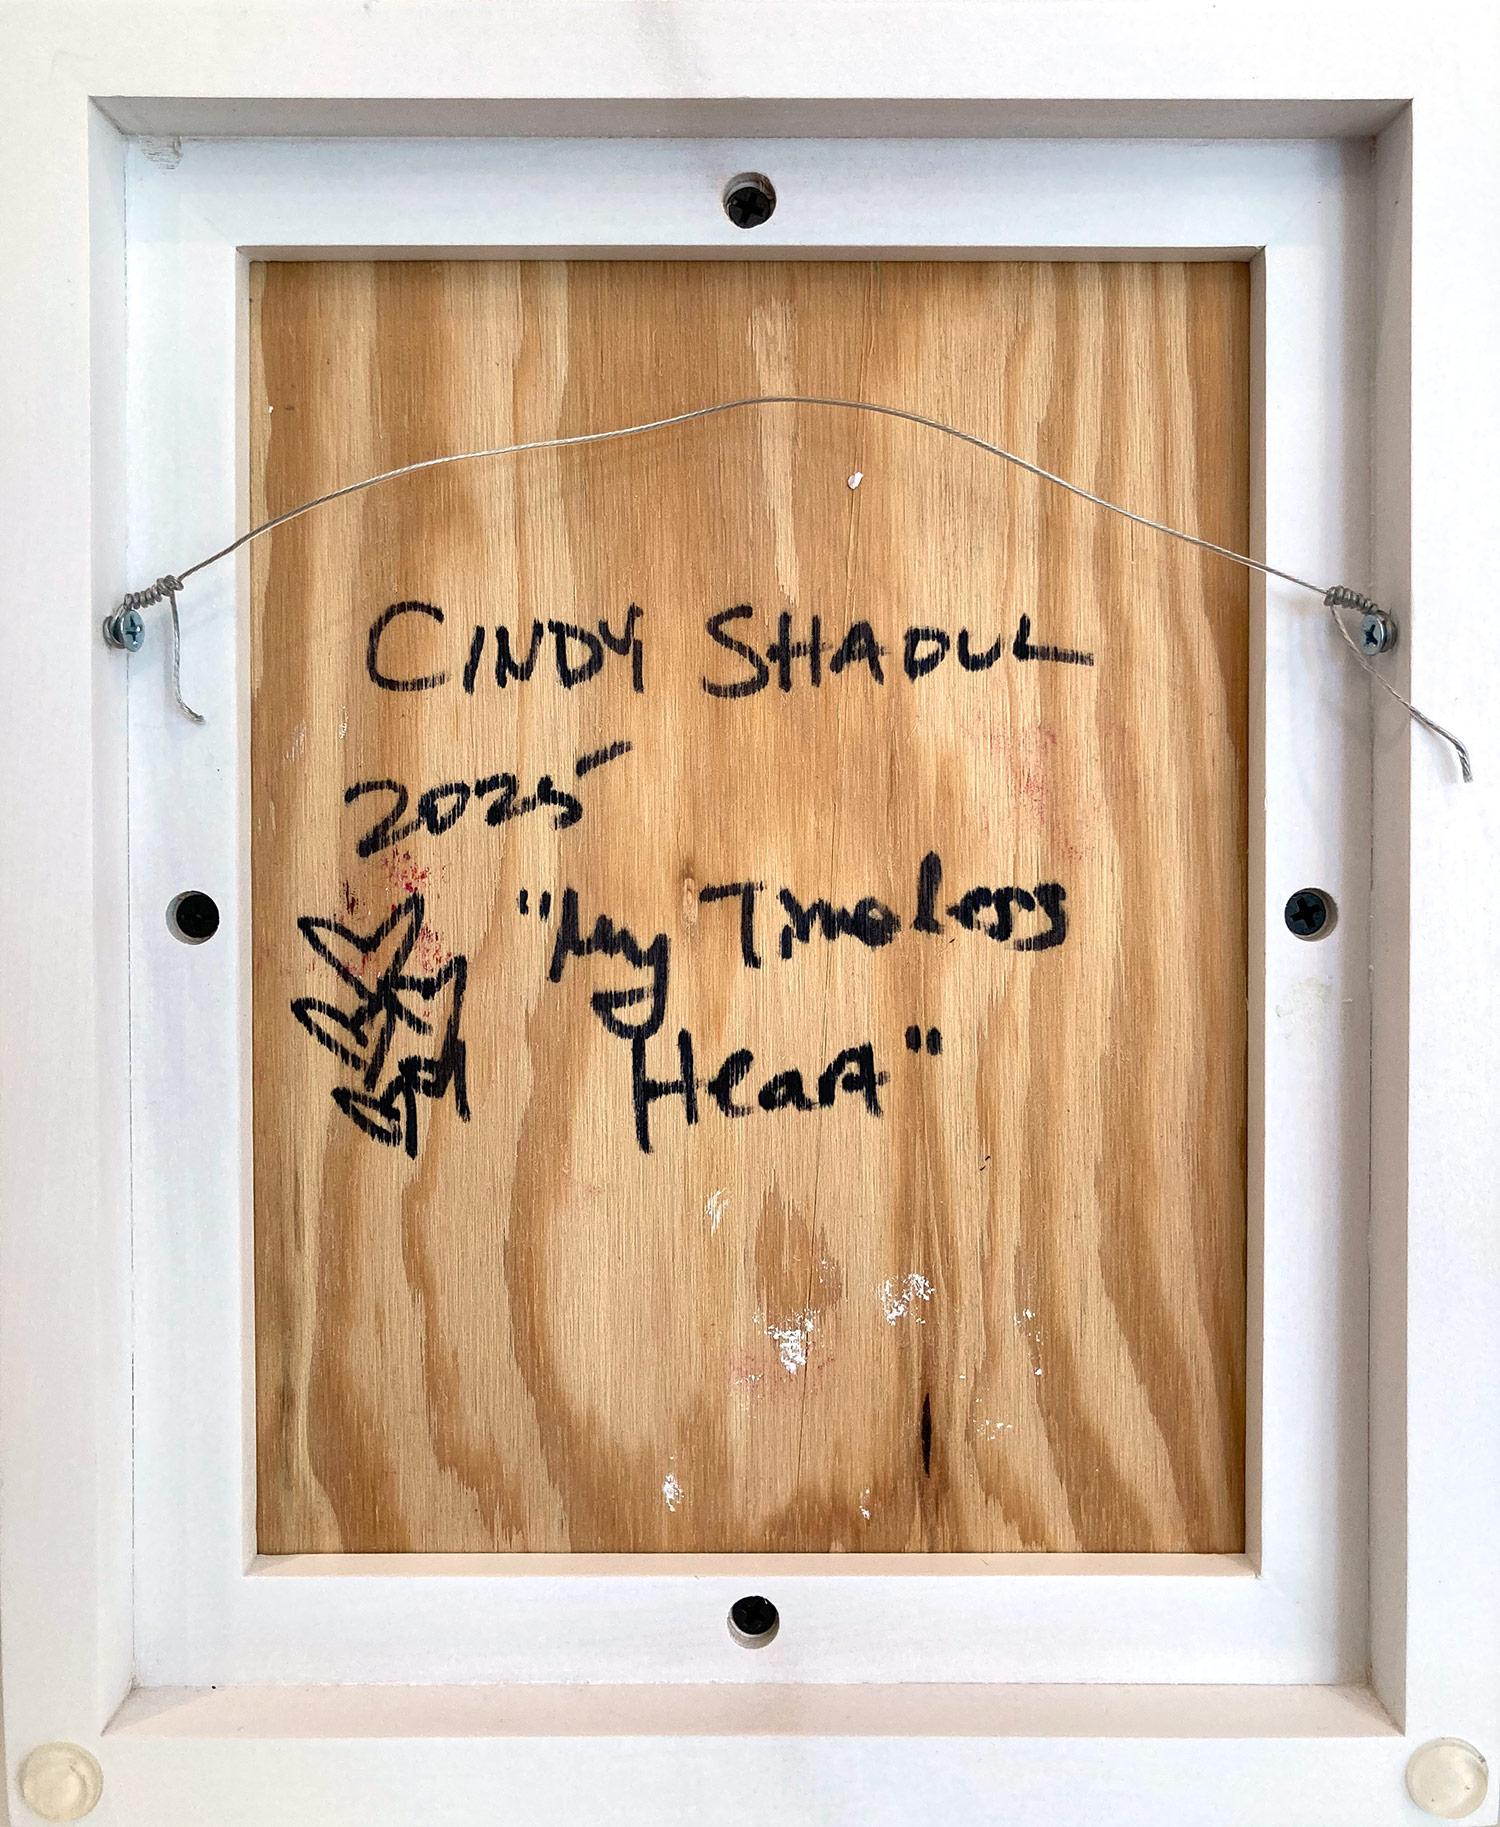 CINDY SHAOUL
2025
"My Timeless
Heart"